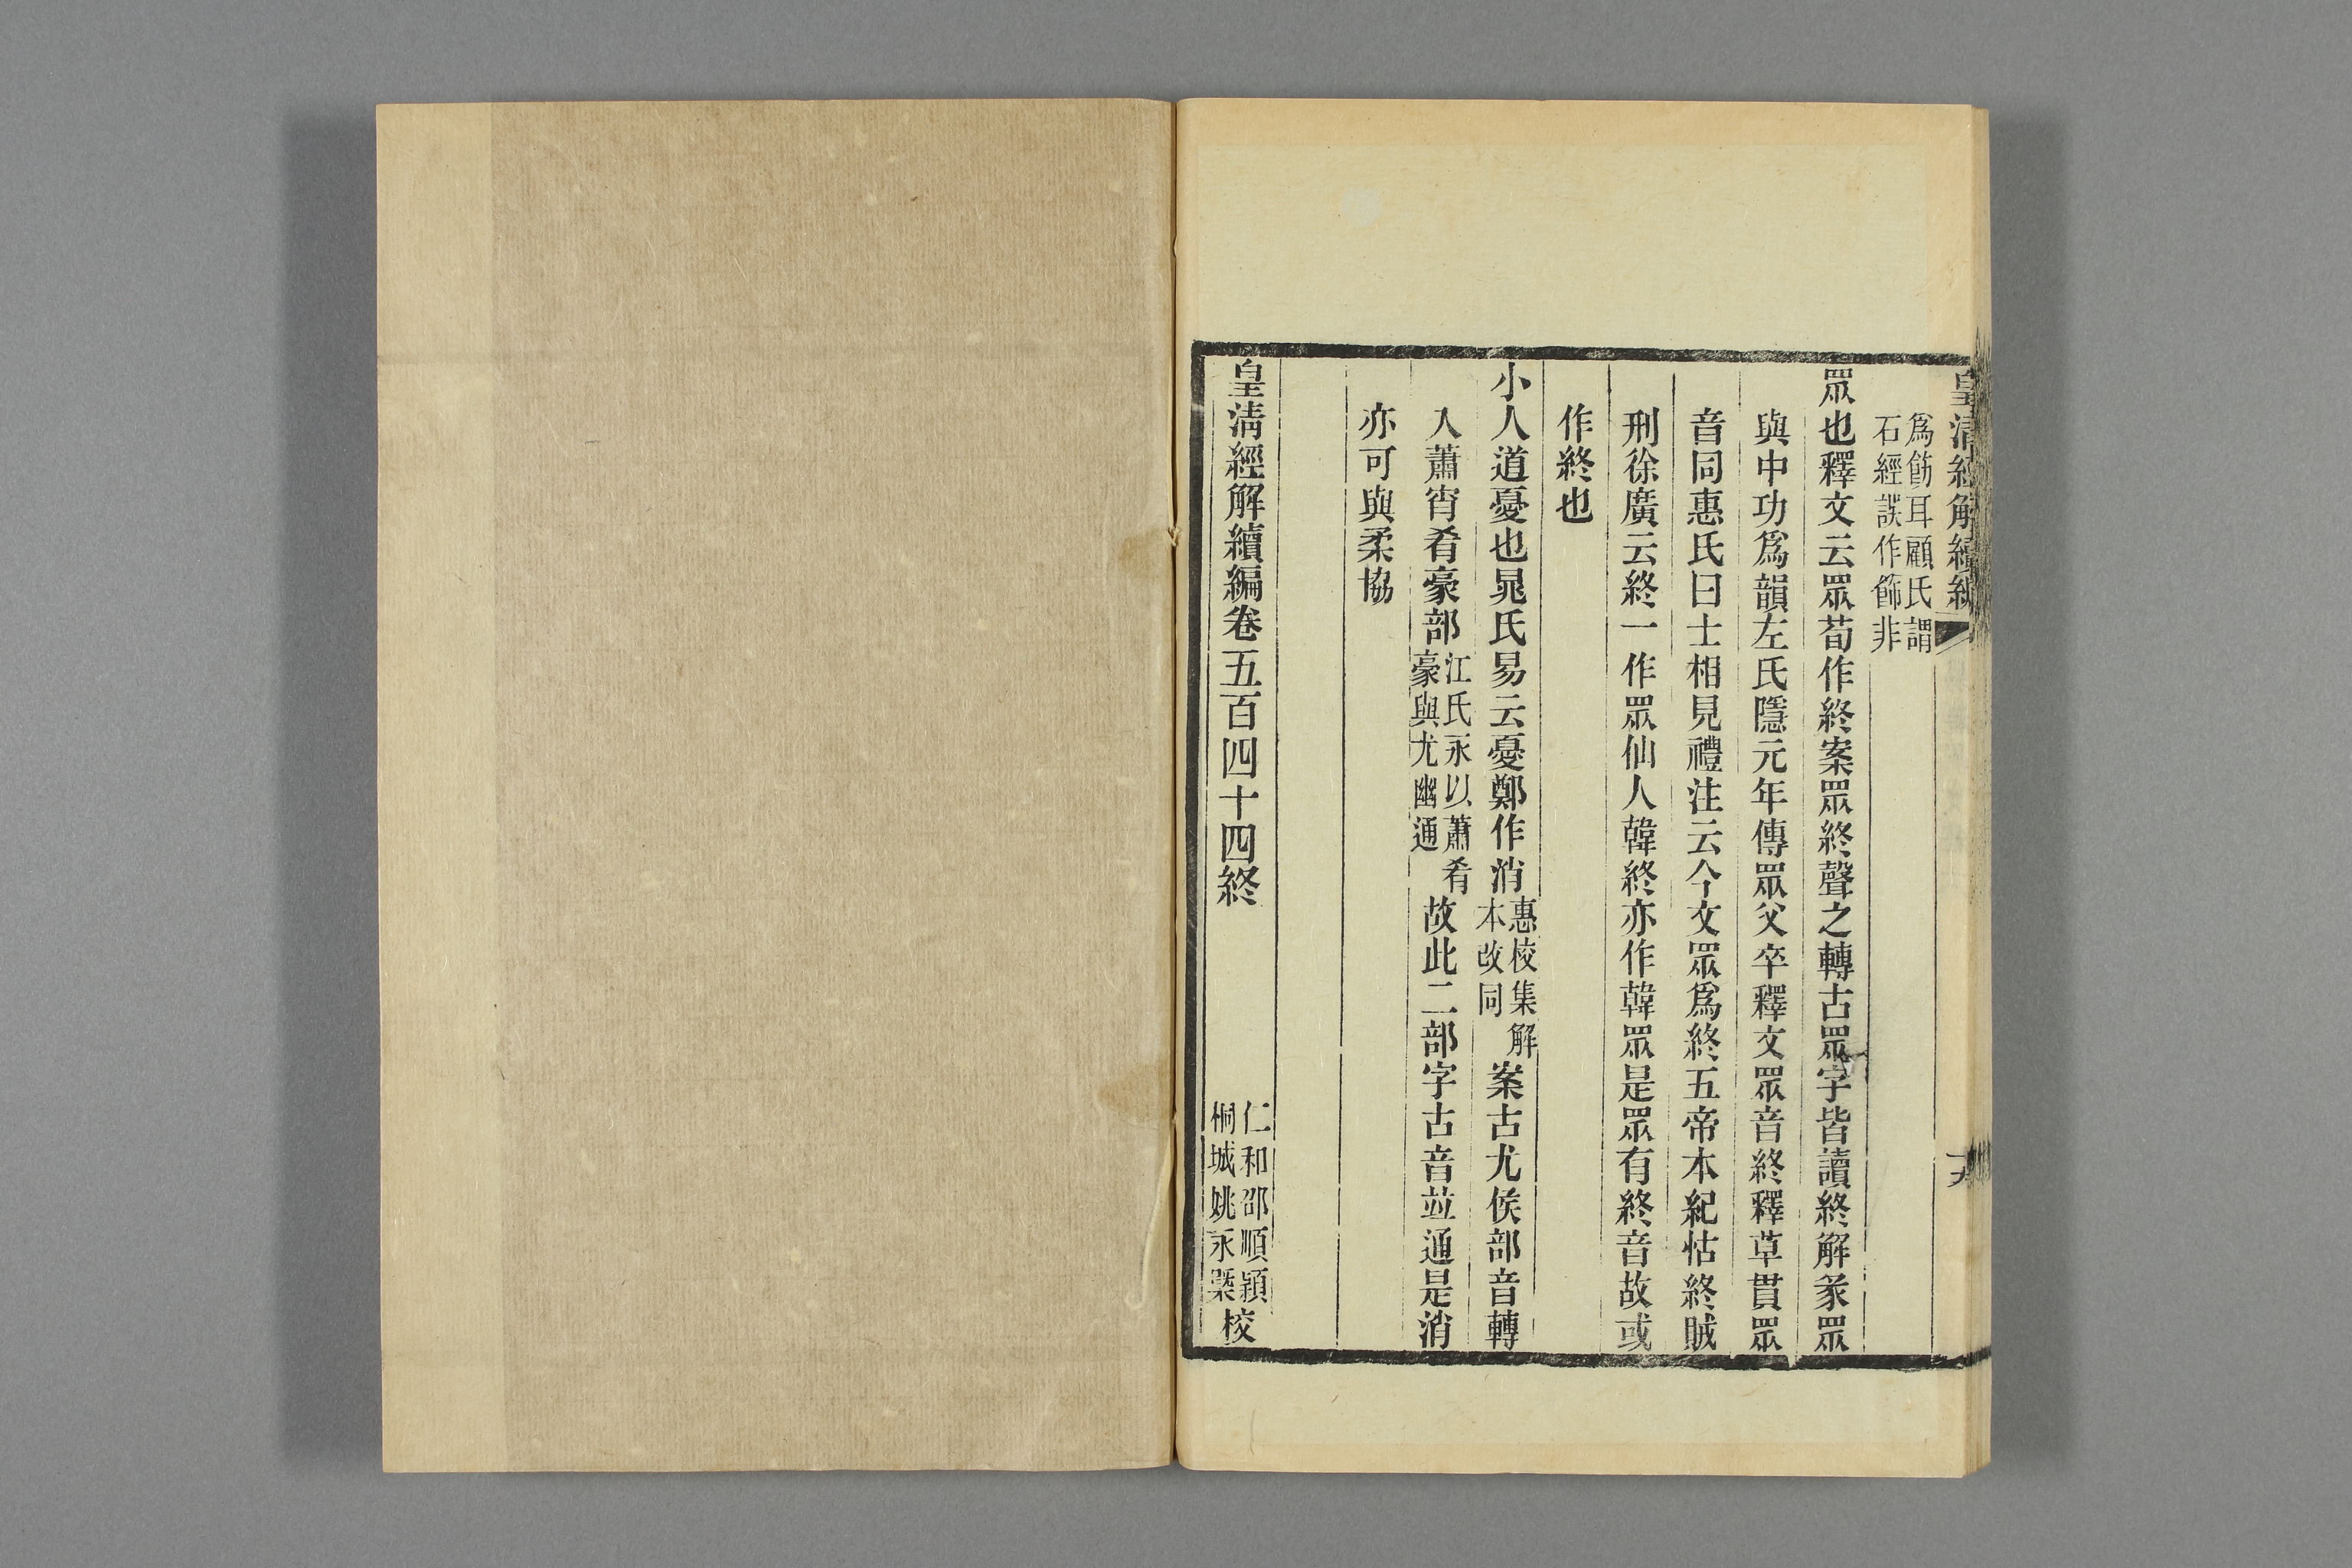 皇清經解續編
爲飭耳顧氏謂
石經誤作飾非
眾也釋文云眾荀作終案眾終聲之轉古眾字皆讀終解彖眾
與中功爲韻左氏隱元年傳眾父卒釋文眾音終釋草貫眾
音同惠氏曰士相見禮注云今文眾爲終五帝本紀怙終賊
刑徐廣云終一作眾仙人韓終亦作韓眾是眾有終音故或
作終也
小人道憂也晁氏易云憂鄭作消惠校集解本改同案古尤侯部音轉
入蕭宵肴豪部江氏永以蕭肴豪與尤幽通故此二部字古音並通是消
亦可與柔協
皇清經解續編卷五百四十四終
仁和邵順穎
桐城姚永㮣校